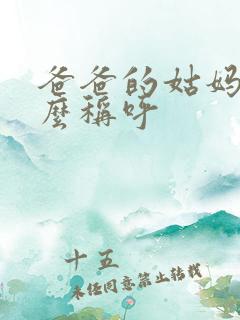 爸爸的姑妈
麼稱呼
十五
未经同意禁止转载